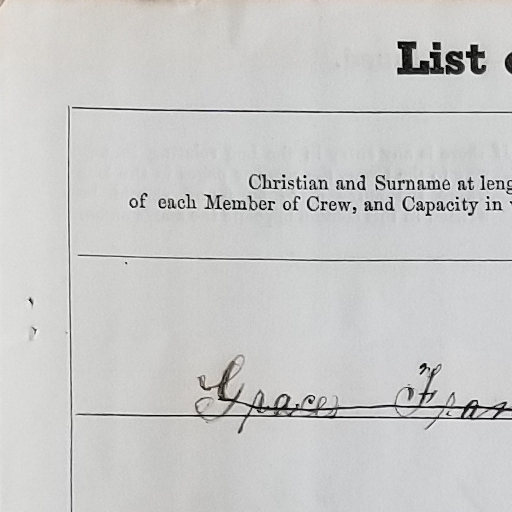 List
Christian and Surname at leng
of each Member of Crew, and Capacity in